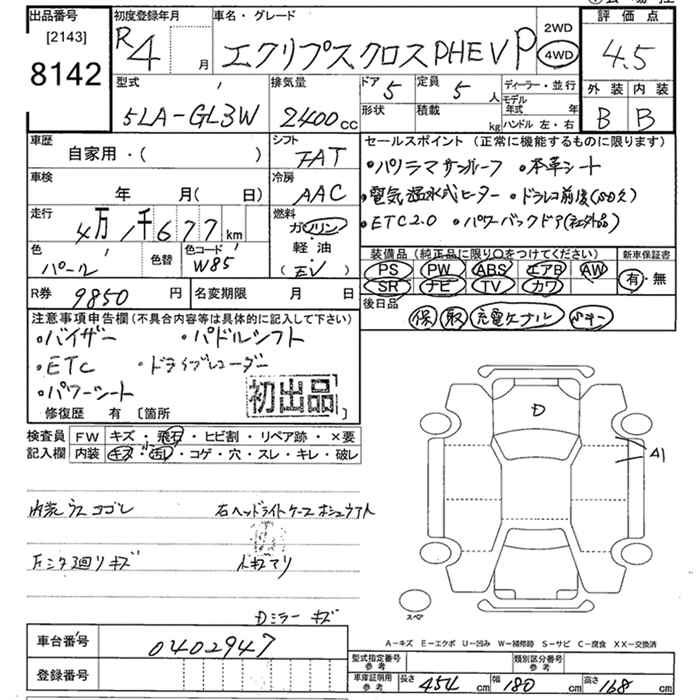 出品番号
[2143]
8142
初度登録年月
R4 月
車名・グレード
エクリプスクロスPHEV P
2WD
4WD
評価点
4.5
型式
5LA-GL3W
排気量
2400cc
ドア 5
定員 5人
形状
積載 kg
ディーラー・並行
モデル年式 年
ハンドル 左・右
外装 内装
B B
車歴
自家用・( )
シフト
FAT
車検
年 月( 日)
冷房
AAC
走行
4万1千677km
燃料
ガソリン
軽・油
(EV)
色
パール
色替
色コード
W85
R券 9850円
名変期限 月 日
セールスポイント(正常に機能するものに限ります)
・パノラマサンルーフ ・本革シート
・電気温水式ヒーター ・ドラレコ前後
・ETC2.0 ・パワーバックドア(社外品)
装備品(純正品に限り○をつけてください)
PS PW ABS エアB AW
SR ナビ TV カワ
新車保証書
有・無
後日品
保 取 充電ケーブル
注意事項申告欄(不具合内容等は具体的に記入して下さい)
・バイザー ・パドルシフト
・ETC ・ドライブレコーダー
・パワーシート
初出品
修復歴 有 [箇所
検査員記入欄
FW キズ・飛石・ヒビ割・リペア跡・×要
内装 キズ・汚レ・コゲ・穴・スレ・キレ・破レ
内装ウスヨゴレ
右ヘッドライトケース
左ミラー廻リキズ
ミラー キズ
D
A1
スペア
A-キズ E-エクボ U-凹み W-補修跡 S-サビ C-腐食 XX-交換済
車台番号
0402947
登録番号
型式指定番号 参考
類別区分番号 参考
車庫証明用 参考
長さ 454cm
幅 180cm
高さ 168cm